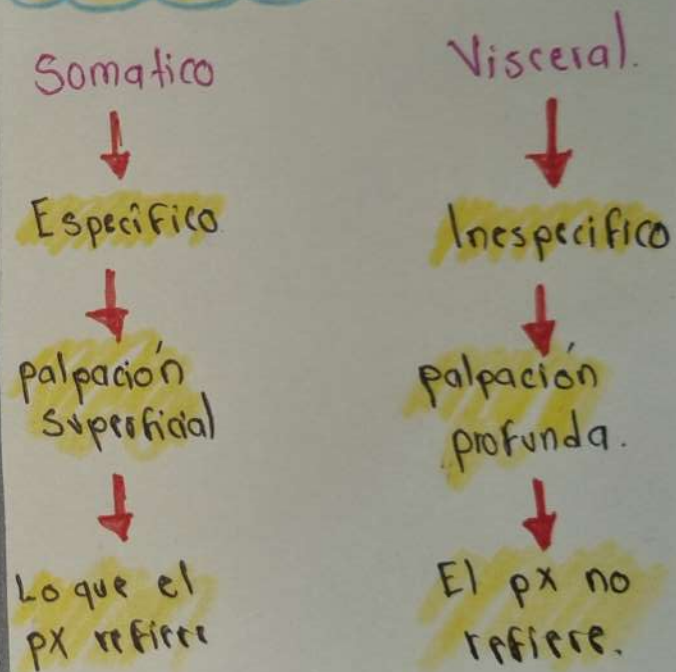 Somatico
Específico
palpación
superficial
Lo que el
px refiere
Visceral.
Inespecifico
palpación
profunda.
El px no
refiere.